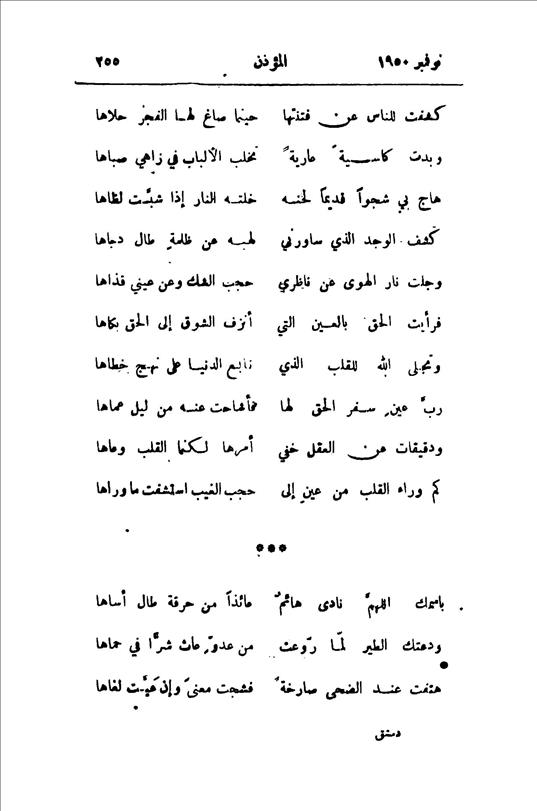 نوفمبر ١٩٥٠ المؤذن ٢٥٥
كشفت للناس عن فتنتها حينما صاغ لها الفجر حلاها
وبدت كاسيةً عاريةً تخلب الألباب في زاهي صباها
هاج بي شجواً قديماً لحنه خلته النار إذا شبَّت لظاها
كشف الوجد الذي ساورني لهبه عن ظلمةٍ طال دجاها
وجلت نار الهوى عن ناظري حجب الشك وعن عيني قذاها
فرأيت الحق بالعين التي أنزف الشوق إلى الحق بكاها
وتجلى الله للقلب الذي تابع الدنيا على نهج خطاها
ربَّ عينٍ سفر الحق لها فأشاحت عنه من ليل عماها
ودقيقات عن العقل خفي أمرها لكنما القلب وعاها
كم وراء القلب من عينٍ إلى حجب الغيب استشفت ما وراها
***
باسمك اللهمَّ نادى هائمٌ عائذاً من حرقة طال أساها
ودعتك الطير لمّا روّعت من عدوٍّ عاث شرًّا في حماها
هتفت عند الضحى صارخةً فشجت معنىً وإن عيَّت لغاها
دمشق